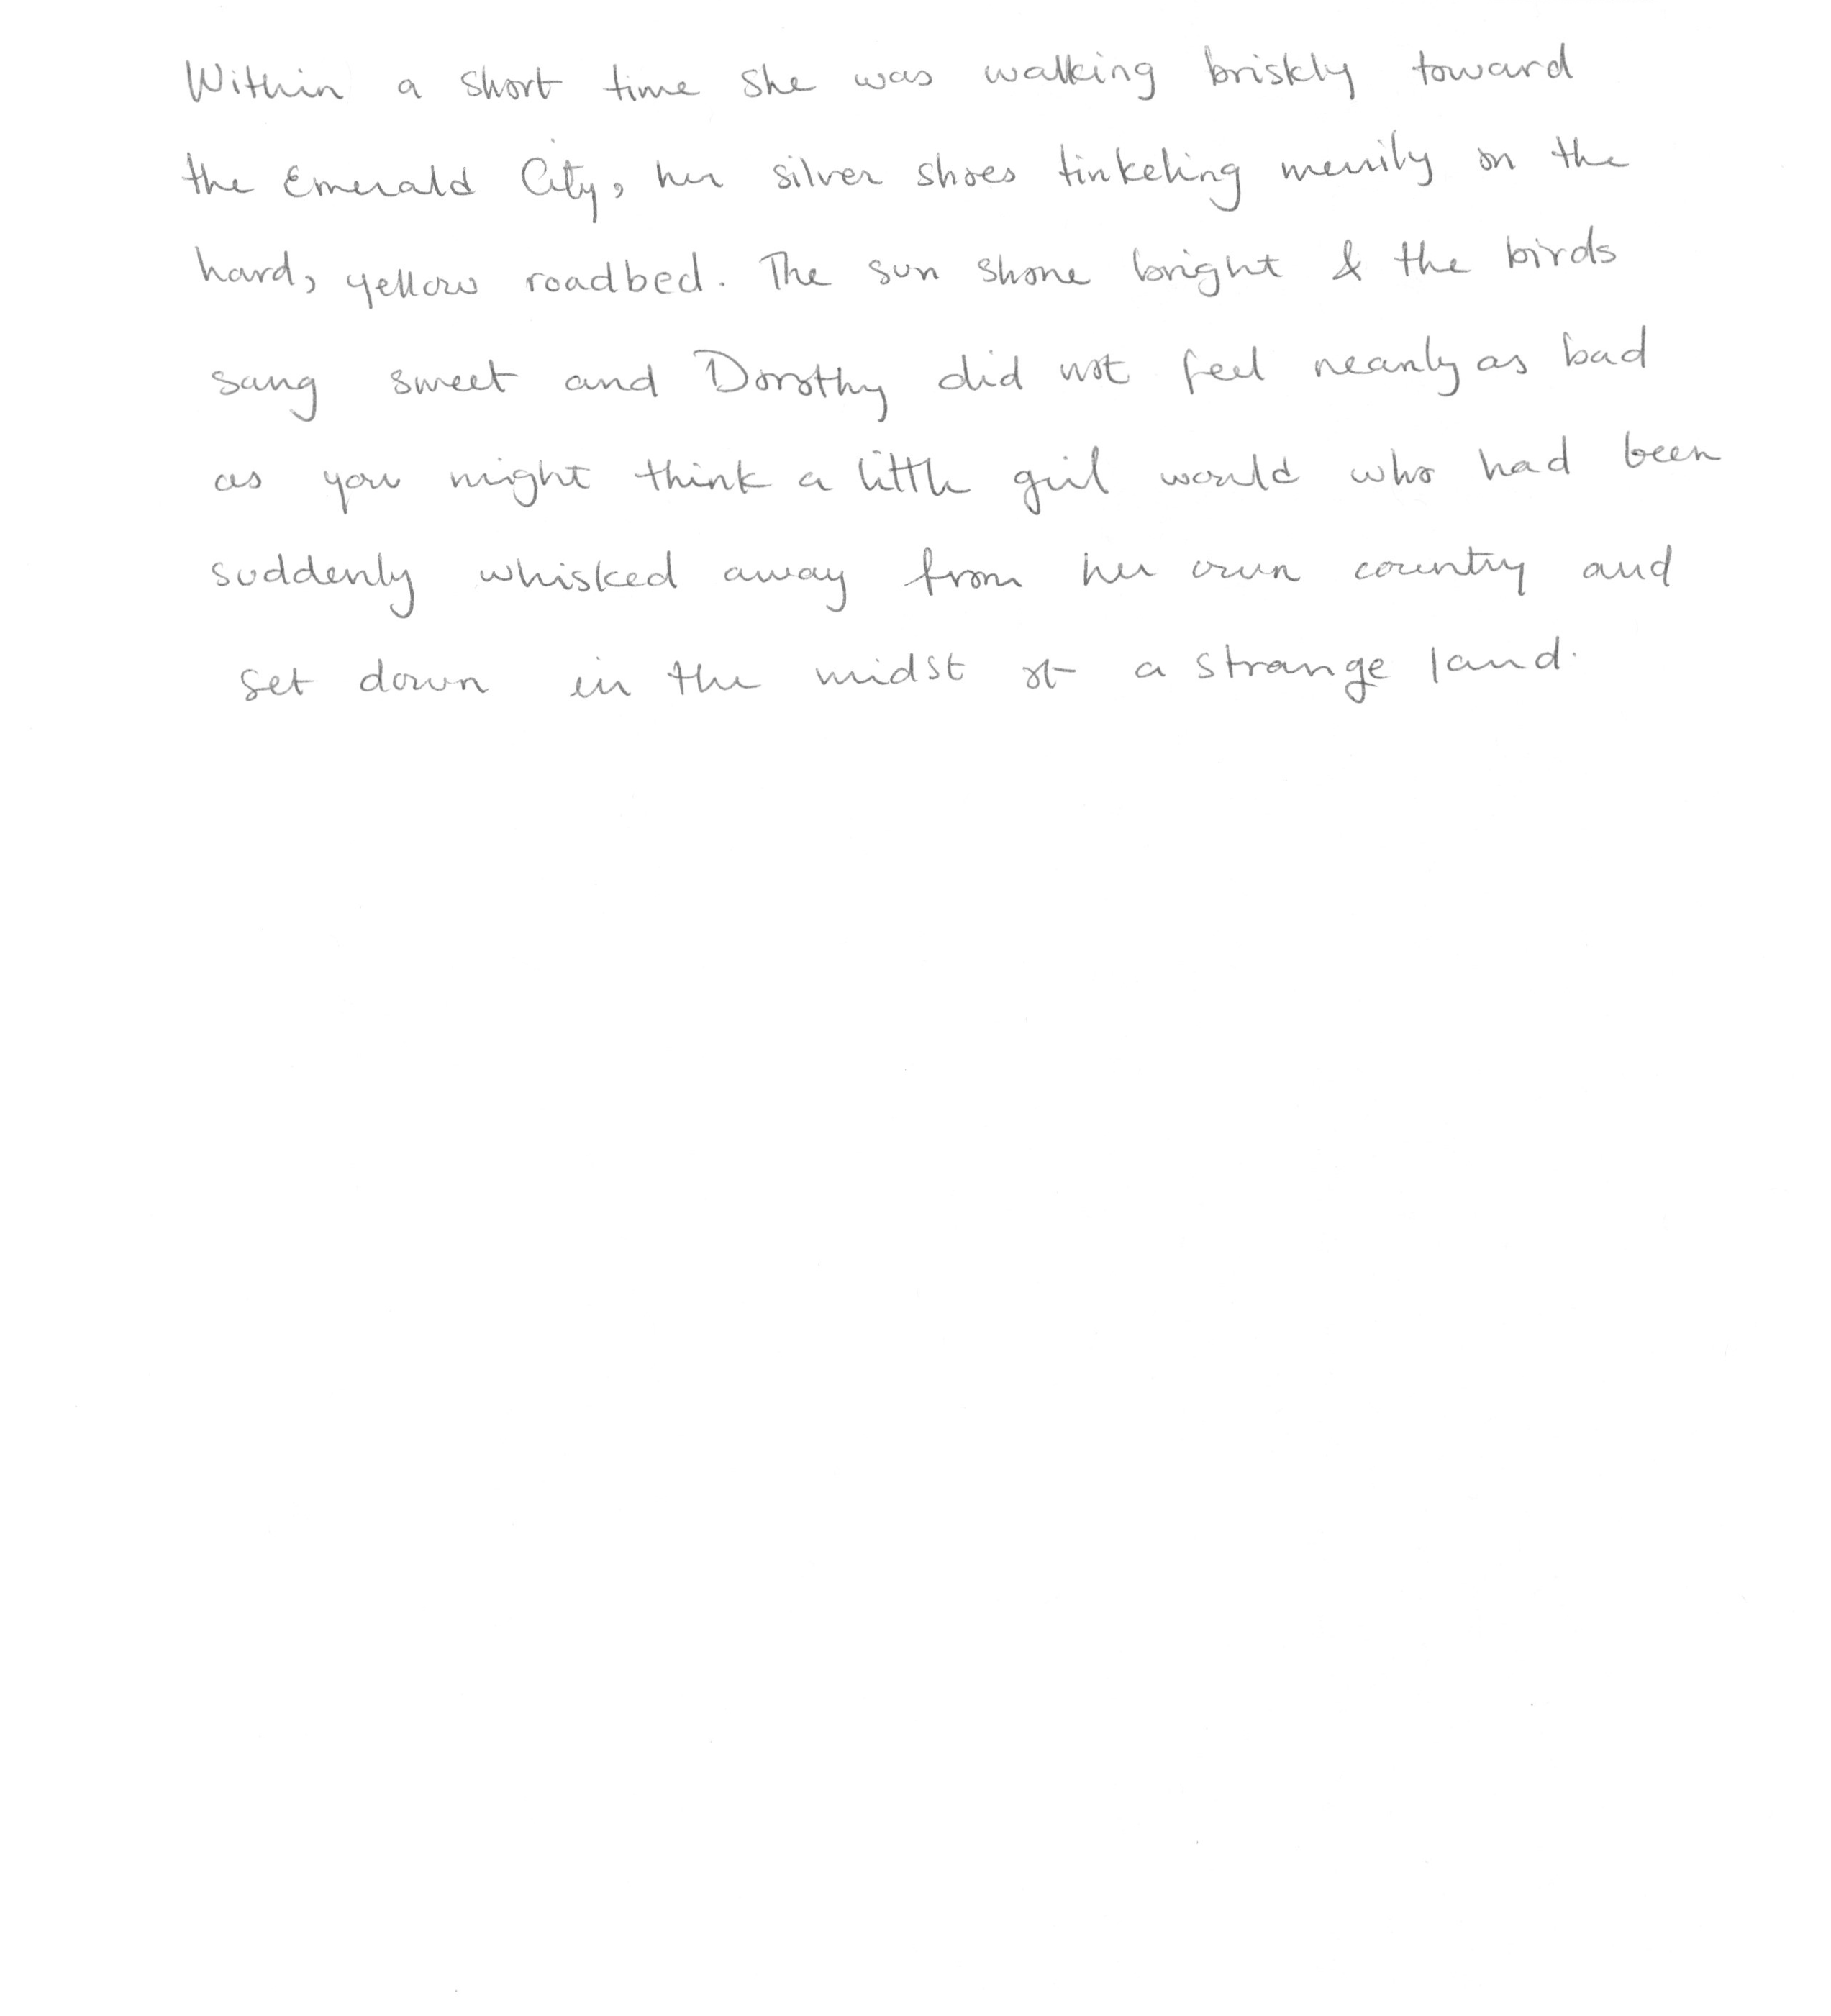 Within a short time she was walking briskly toward
the Emerald City, her silver shoes tinkeling merrily on the
hard, yellow roadbed. The sun shone bright & the birds
sang sweet and Dorothy did not feel nearly as bad
as you might think a little girl would who had been
suddenly whisked away from her own country and
set down in the midst of a strange land.